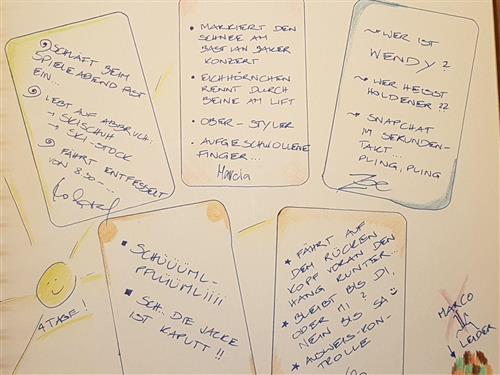 SCHLÄFT BEIM
SPIELEABEND FAST
EIN...
LEBT AUF ABBRUCH.
→ SKISCHUH
→ SKI-STOCK
FÄHRT ENTFESSELT
VON 8.30 - ...
• MARKIERT DEN
SCHNEE AM
BASTIAN BAKER
KONZERT
• EICHHÖRNCHEN
RENNT DURCH
BEINE AM LIFT
• OBER-STYLER
• AUFGESCHWOLLENE
FINGER...
Marcia
~ WER IST
WENDY?
~ WER HEISST
HOLDENER??
~ SNAPCHAT
IM SEKUNDEN-
TAKT...
PLING, PLING
4 TAGE!
▪ SCHÜÜÜML-
PFLÜÜMLIIII
▪ SCH... DIE JACKE
IST KAPUTT!!
* FÄHRT AUF
DEM RÜCKEN
KOPF VORAN DEN
HANG RUNTER...
* BLEIBT BIS DI,
ODER MI?
NEIN BIS SA
* AUSWEIS-KON-
TROLLE
MARCO
LEIDER